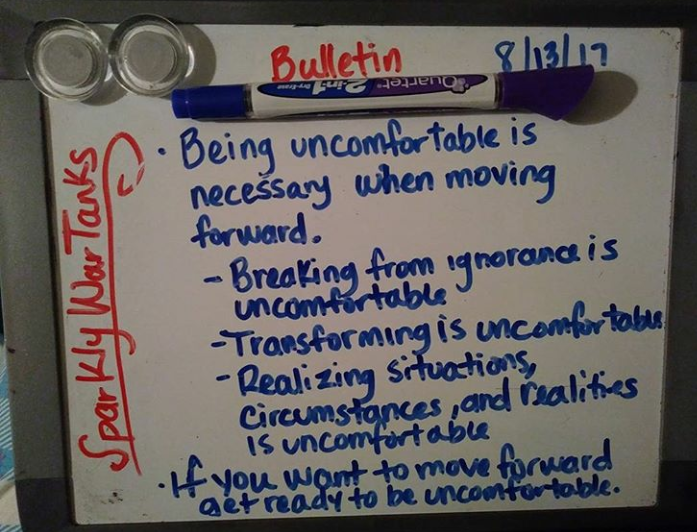 Bulletin 8/13/17
Quartet 2-in-1
Sparkly War Tanks
· Being uncomfortable is
necessary when moving
forward.
- Breaking from ignorance is
uncomfortable
- Transforming is uncomfortable
- Realizing situations,
circumstances, and realities
is uncomfortable
· If you want to move forward
get ready to be uncomfortable.